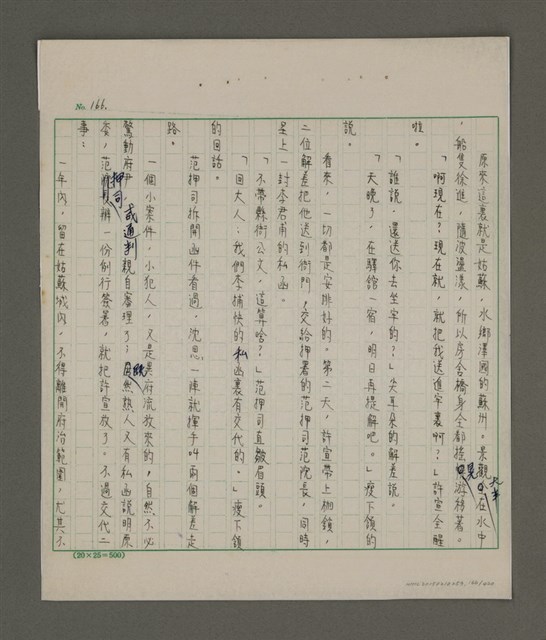 No. 166.
原來這裏就是姑蘇,水鄉澤國的蘇州。景觀大半在水中
,船隻徐進,隨波盪漾,所以房舍橋身全都搖晃游移著。
「啊現在?現在就,就把我送進牢裏啊?」許宣全醒
啦。
「誰說,還送你去坐牢的?」尖耳朵的解差說。
「天晚了,在驛館一宿,明日再提解吧。」瘦下頷的
說。
看來,一切都是安排好的。第二天,許宣帶上枷鎖,
二位解差把他送到衙門,交給押署的范押司范院長,同時
呈上一封李君甫的私函。
「不帶縣衙公文,這算啥?」范押司直皺眉頭。
「回大人,我們李捕快的私函裏有交代的。」瘦下頷
的回話。
范押司拆開函件看過,沈思一陣就揮手叫兩個解差走
路。
一個小案件,小犯人,又是異府流放來的,自然不必
驚動府尹或通判親自審理了;既然熟人又有私函說明原
委,范押司辦一份例行簽署,就把許宣放了。不過交代二
事:
一年內,留在姑蘇城內,不得離開府治範圍,尤其不
(20×25=500)